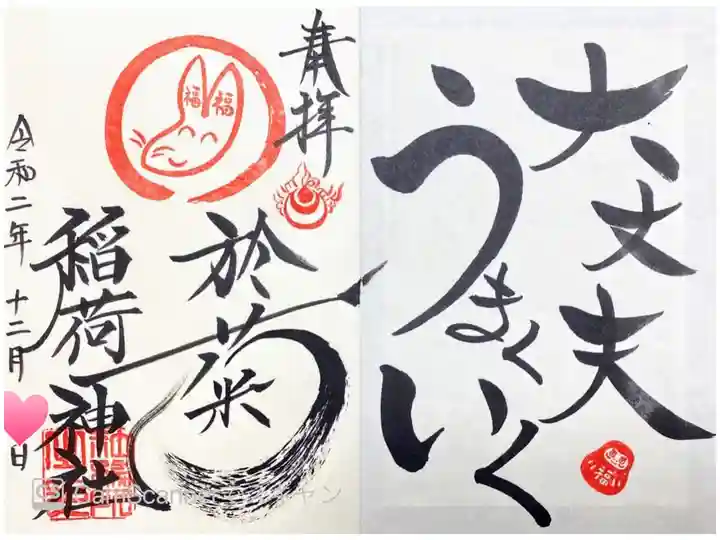 大丈夫
うまくいく
奉拝
福福
於菊
稲荷神社
令和二年 十二月
日
福
CamScanner